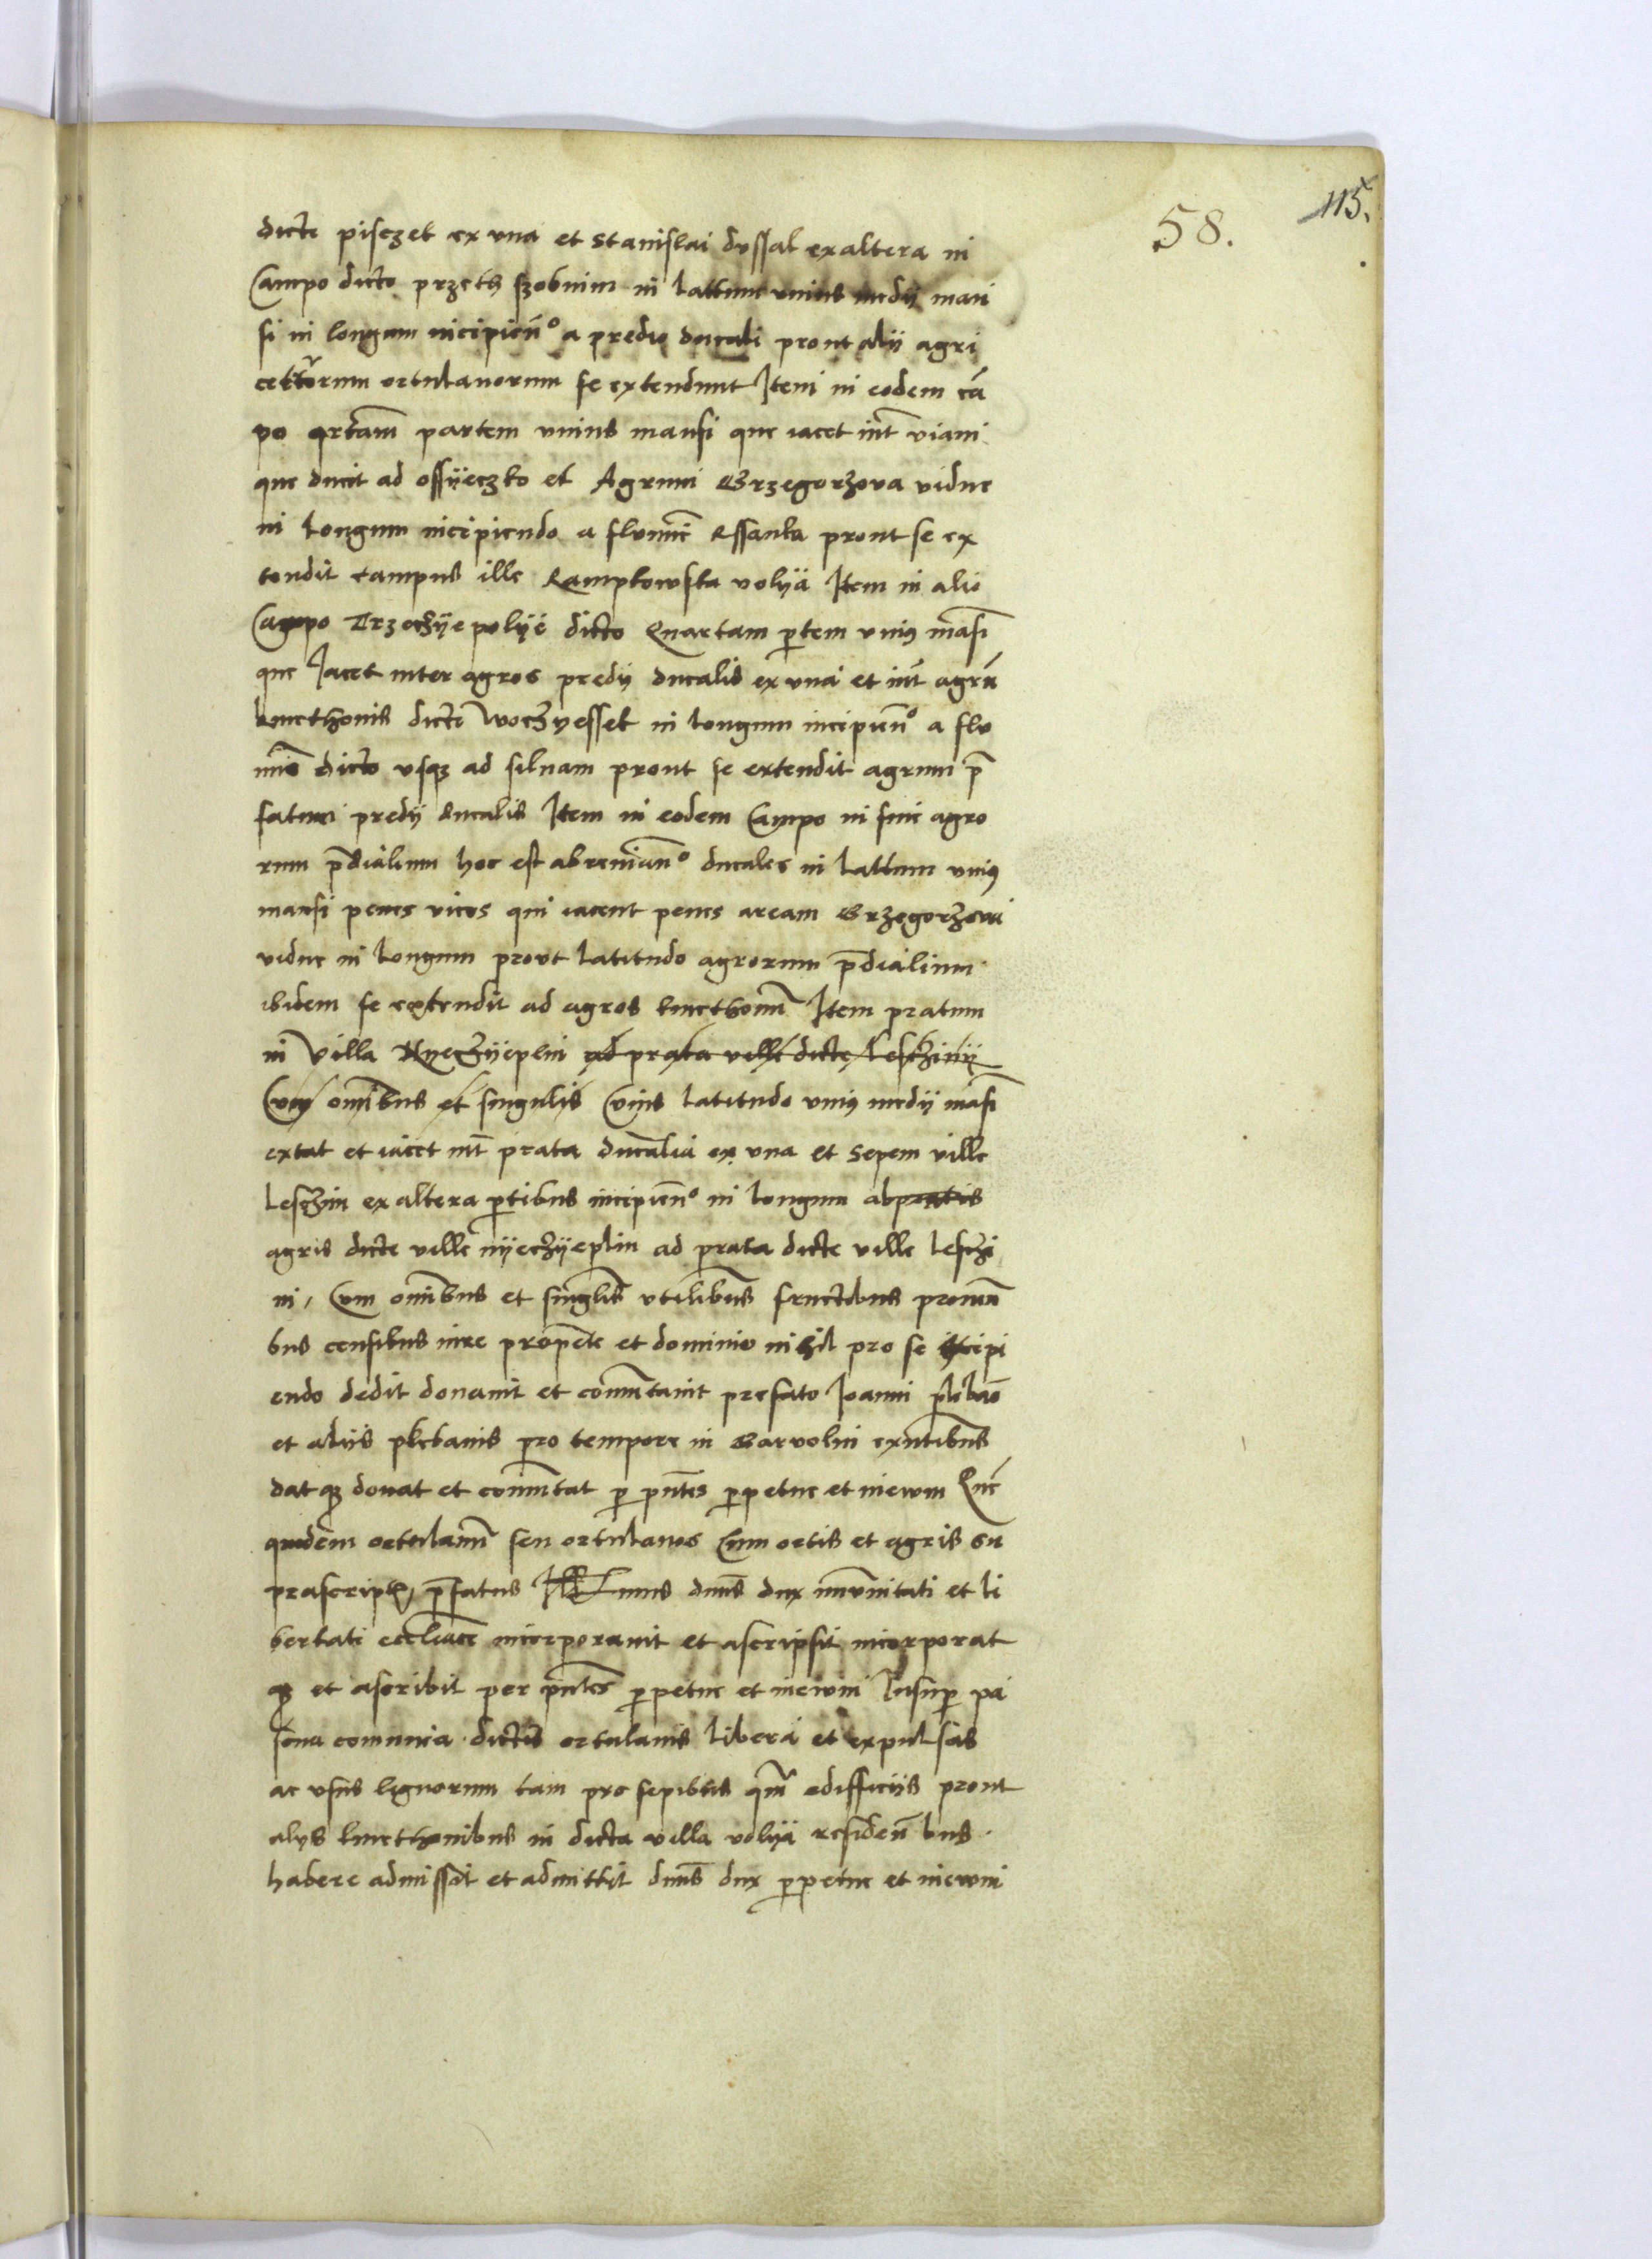 58.
115.
dicte pisczek ex vna et Stanislai dussal ex altera in
Campo dicto przeth szobnim in lattum vnius medij man
si in longum incipien° a predio ducali prout alii agri
ceterorum ortulanorum se extendunt Item in eodem cā
po qrtam partem vnius mansi que iacet int viam
que ducit ad ossijeczko et Agrum Grzegorzova vidue
in longum incipiendo a flumie prout se ex
tendit campus ille volijä Item in alio
Campo Trzeczijepolije dicto Quartam ptem vnius māsi
que Iacet inter agros predij ducalis ex vna et int agrū
kmethonis dicti Woczyessek in longum incipien° a flu
mīe dicto vsqz ad siluam prout se extendit agrum p̄
fatum predij ducalis Item in eodem Campo in fine agro
rum p̄dialium hoc est abreuian° ducales in lattum vnius
mansi penes vicos qui iacent penes aream Grzegorzova
vidue in longum prout latitudo agrorum p̄dialium
ibidem se extendit ad agros kmethonū Item pratum
in Villa Nyeczijeplin ad prata ville dicte Lesczinij
Cum omībus et singulis Cuius latitudo vnius medij māsi
extat et iacet int prata ducalia ex vna et Sepem ville
Lesczin ex altera ptibus incipien° in longum ab pratis
agris dicte ville nijeczijeplin ad prata dicte ville lesczi
ni, Cum omībus et singlis vtilibus fructibus prouen
bus censibus iure propete et dominio nihil pro se excipi
endo dedit donauit et comutauit prefato Ioanni plebāo
et aliis plebanis pro tempore in Garvolin exntibus
dat qz donat et comutat p pntes ppetue et in ewum Que
quidem ortulanū seu ortulanos Cum ortis et agris su
prascriptis p̄fatus Illmus dnus dux imunitati et li
bertati eccliace incorporauit et ascripsit incorporat
qz et ascribit per pntes ppetue et in ewum Insup pa
scua comunia dictis ortulanis libera et expulsas
ac vsus lignorum tam pro sepibus qm edifficiis prout
alys kmethonibus in dicta villa volijä residen bus
habere admissit et admittit dnus dux ppetue et in ewum